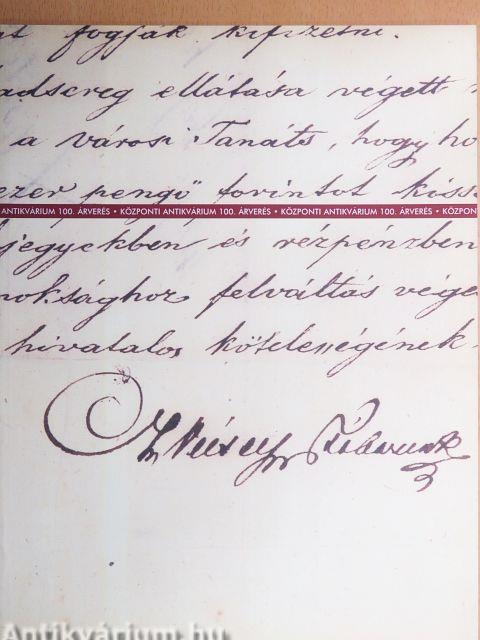 fogják kifizetni.
hadsereg ellátása végett
a városi Tanáts, hogy ho
ezer pengő forintot kiss
ANTIKVÁRIUM 100. ÁRVERÉS • KÖZPONTI ANTIKVÁRIUM 100. ÁRVERÉS • KÖZPONTI ANTIKVÁRIUM 100. ÁRVERÉS • KÖZPON
jegyekben és rézpénzben
noksághoz felváltás vége
hivatalos kötelességének
Antikvárium.hu